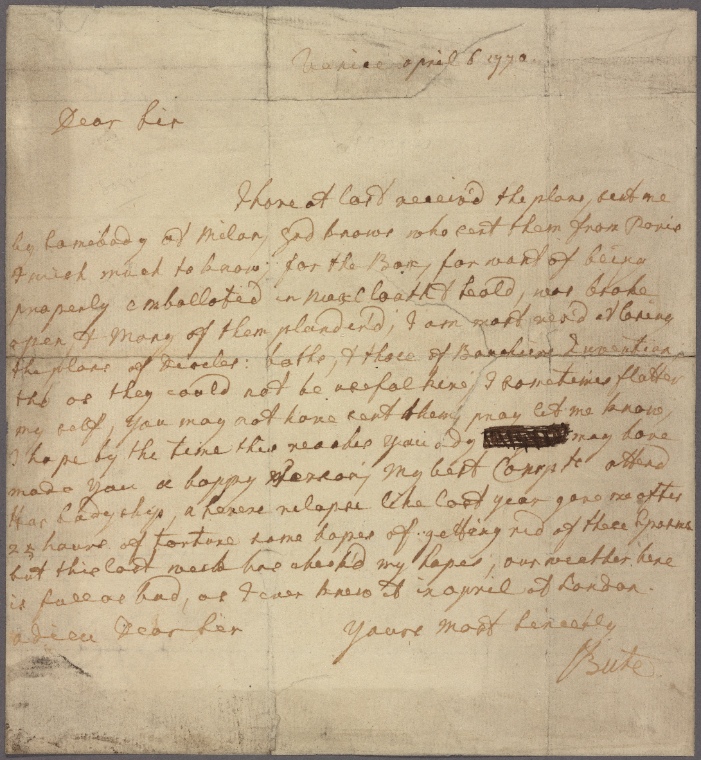 Venice april 6 1770
Dear Sir
I have at last receiv'd the plans, sent me
by somebody at Milan, God knows who sent them from Paris
I wish much to know; for the Box, for want of being
properly emballoted in Wax Cloath & seald, was broke
open & Many of them plunder'd, I am most vex'd at losing
the plans of baths, & those of Invention,
tho as they could not be useful here; I sometimes flatter
my self, you may not have sent them, pray let me know,
I hope by the time this reaches you Lady may have
made you a happy Person; My best Compts attend
Her Ladyship, a severe relapse like last year gave me after
hours of torture some hopes of getting rid of these
but this last week has check'd my hopes; our weather here
is full as bad, as I ever knew it in april at London.
adieu Dear Sir Yours Most Sincerely
Bute